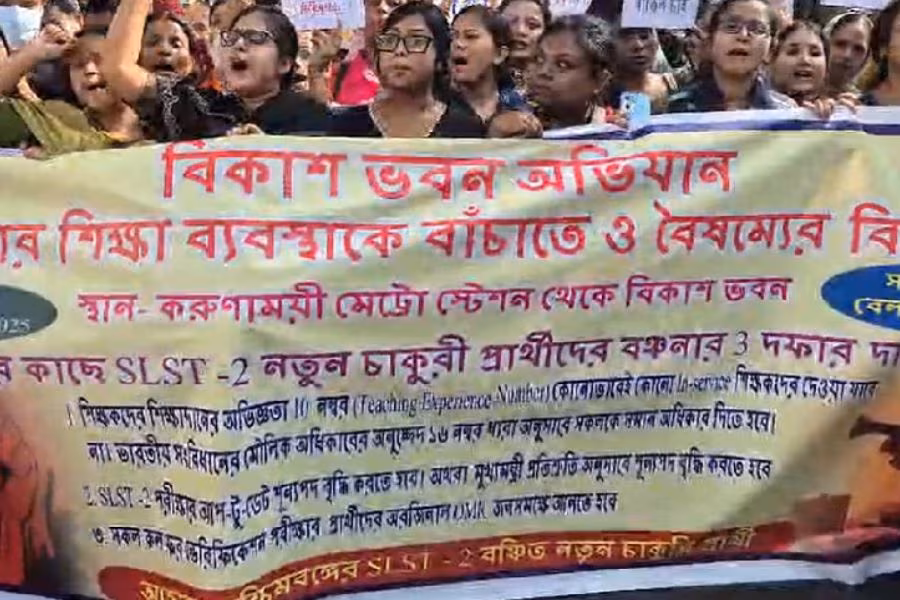 বিকাশ ভবন অভিযান
শিক্ষা ব্যবস্থাকে বাঁচাতে ও বৈষম্যের
স্থান- করুণাময়ী মেট্রো স্টেশন থেকে বিকাশ ভবন
কাছে SLST -2 নতুন চাকুরী প্রার্থীদের বঞ্চনার 3 দফার
1. শিক্ষকদের শিক্ষাদানের অভিজ্ঞতা 10 নম্বর (Teaching Experience Number) কোনোভাবেই কোনো In-service শিক্ষকদের দেওয়া যাবে
না। ভারতীয় সংবিধানের মৌলিক অধিকারের অনুচ্ছেদ ১৬ নম্বর ধারা অনুসারে সকলকে সমান অধিকার দিতে হবে।
2. SLST -2 পরীক্ষার আপ-টু-ডেট শূন্যপদ বৃদ্ধি করতে হবে। অথবা মুখ্যমন্ত্রী প্রতিশ্রুতি অনুসারে শূন্যপদ বৃদ্ধি করতে হবে
৩. সকল ভেরিফিকেশন পরীক্ষার প্রার্থীদের অরজিনাল OMR জনসমক্ষে আনতে হবে
SLST - 2 বঞ্চিত নতুন চাকুরি প্রার্থী